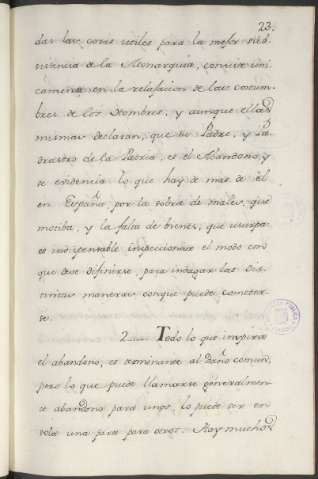 23.
dar las cosas utiles para la mejor subsis
vivencia de la Monarquia, consiste uni
camente en la relajacion de las costum
bres de los Hombres, y aunque ellas
mismas declaran, que su Padre, y Pa
drastro de la Patria, es el Abandono, y
se evidencia lo que hay de mas de el
en España, por la sobra de males, que
motiba, y la falta de bienes, que usurpa
es indispensable inspeccionar el modo con
que deve difinirse, para indagar las dis
tintas maneras conque puede cometer
se.
2. Todo lo que inspira
el abandono, es terminante al Daño comun,
pero lo que puede llamarse generalmen
te abandono para unos, lo puede ser en
sola una parte para otros. Hay muchos